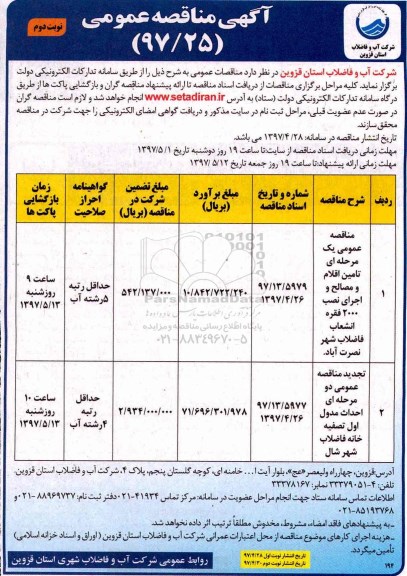 آگهی مناقصه عمومی
(۹۷/۲۵)
نوبت دوم
شرکت آب و فاضلاب
استان قزوین
شرکت آب و فاضلاب استان قزوین در نظر دارد مناقصات عمومی به شرح ذیل را از طریق سامانه تدارکات الکترونیکی دولت
برگزار نماید. کلیه مراحل برگزاری مناقصات از دریافت اسناد مناقصه تا ارائه پیشنهاد مناقصه گران و بازگشایی پاکت ها از طریق
درگاه سامانه تدارکات الکترونیکی دولت (ستاد) به آدرس www.setadiran.ir انجام خواهد شد و لازم است مناقصه گران
در صورت عدم عضویت قبلی، مراحل ثبت نام در سایت مذکور و دریافت گواهی امضای الکترونیکی را جهت شرکت در مناقصه
محقق سازند.
تاریخ انتشار مناقصه در سامانه: ۱۳۹۷/۴/۲۸ می باشد.
مهلت زمانی دریافت اسناد مناقصه از سایت: تا ساعت ۱۹ روز دوشنبه تاریخ ۱۳۹۷/۵/۱
مهلت زمانی ارائه پیشنهاد: تا ساعت ۱۹ روز جمعه تاریخ ۱۳۹۷/۵/۱۲
ردیف
شرح مناقصه
شماره و تاریخ
اسناد مناقصه
مبلغ برآورد
(بریال)
مبلغ تضمین
شرکت در
مناقصه (بریال)
گواهینامه
احراز
صلاحیت
زمان
بازگشایی
پاکت ها
۱
مناقصه
عمومی یک
مرحله ای
تامین اقلام
و مصالح و
اجرای نصب
۲۰۰۰ فقره
انشعاب
فاضلاب شهر
نصرت آباد.
۹۷/۱۳/۵۹۷۹
۱۳۹۷/۴/۲۶
۱۰/۸۴۲/۷۲۲/۲۴۰
۵۴۲/۱۳۷/۰۰۰
حداقل رتبه
۵رشته آب
ساعت ۹
روزشنبه
۱۳۹۷/۵/۱۳
۲
تجدید مناقصه
عمومی دو
مرحله ای
احداث مدول
اول تصفیه
خانه فاضلاب
شهر شال
۹۷/۱۳/۵۹۷۷
۱۳۹۷/۴/۲۶
۷۱/۶۹۶/۳۰۱/۹۷۸
۲/۹۳۴/۰۰۰/۰۰۰
حداقل
رتبه
۴رشته آب
ساعت ۱۰
روزشنبه
۱۳۹۷/۵/۱۳
ParsNamadData
پایگاه اطلاع رسانی مناقصه و مزایده
۰۲۱-۸۸۳۴۹۶۷۰-۵
آدرس:قزوین، چهارراه ولیعصر«عج»، بلوار آیت ا... خامنه ای، کوچه گلستان پنجم، پلاک ۴، شرکت آب و فاضلاب استان قزوین.
تلفن: ۴-۳۳۳۷۹۰۵۱ نمابر: ۳۳۳۷۸۱۶۷
اطلاعات تماس سامانه ستاد جهت انجام مراحل عضویت در سامانه: مرکز تماس ۴۱۹۳۴-۰۲۱ دفتر ثبت نام: ۸۸۹۶۹۷۳۷-۰۲۱ و
۸۵۱۹۳۷۶۸-۰۲۱
ـ به پیشنهادهای فاقد امضاء، مشروط، مخدوش مطلقاً ترتیب اثر داده نخواهد شد.
ـ هزینه اجرای کارهای موضوع مناقصه از محل اعتبارات عمرانی شرکت آب و فاضلاب استان قزوین (اوراق و اسناد خزانه اسلامی)
تأمین میگردد.
۱۹۴
تاریخ انتشار نوبت اول ۹۷/۴/۲۸
تاریخ انتشار نوبت دوم ۹۷/۴/۳۰
روابط عمومی شرکت آب و فاضلاب شهری استان قزوین